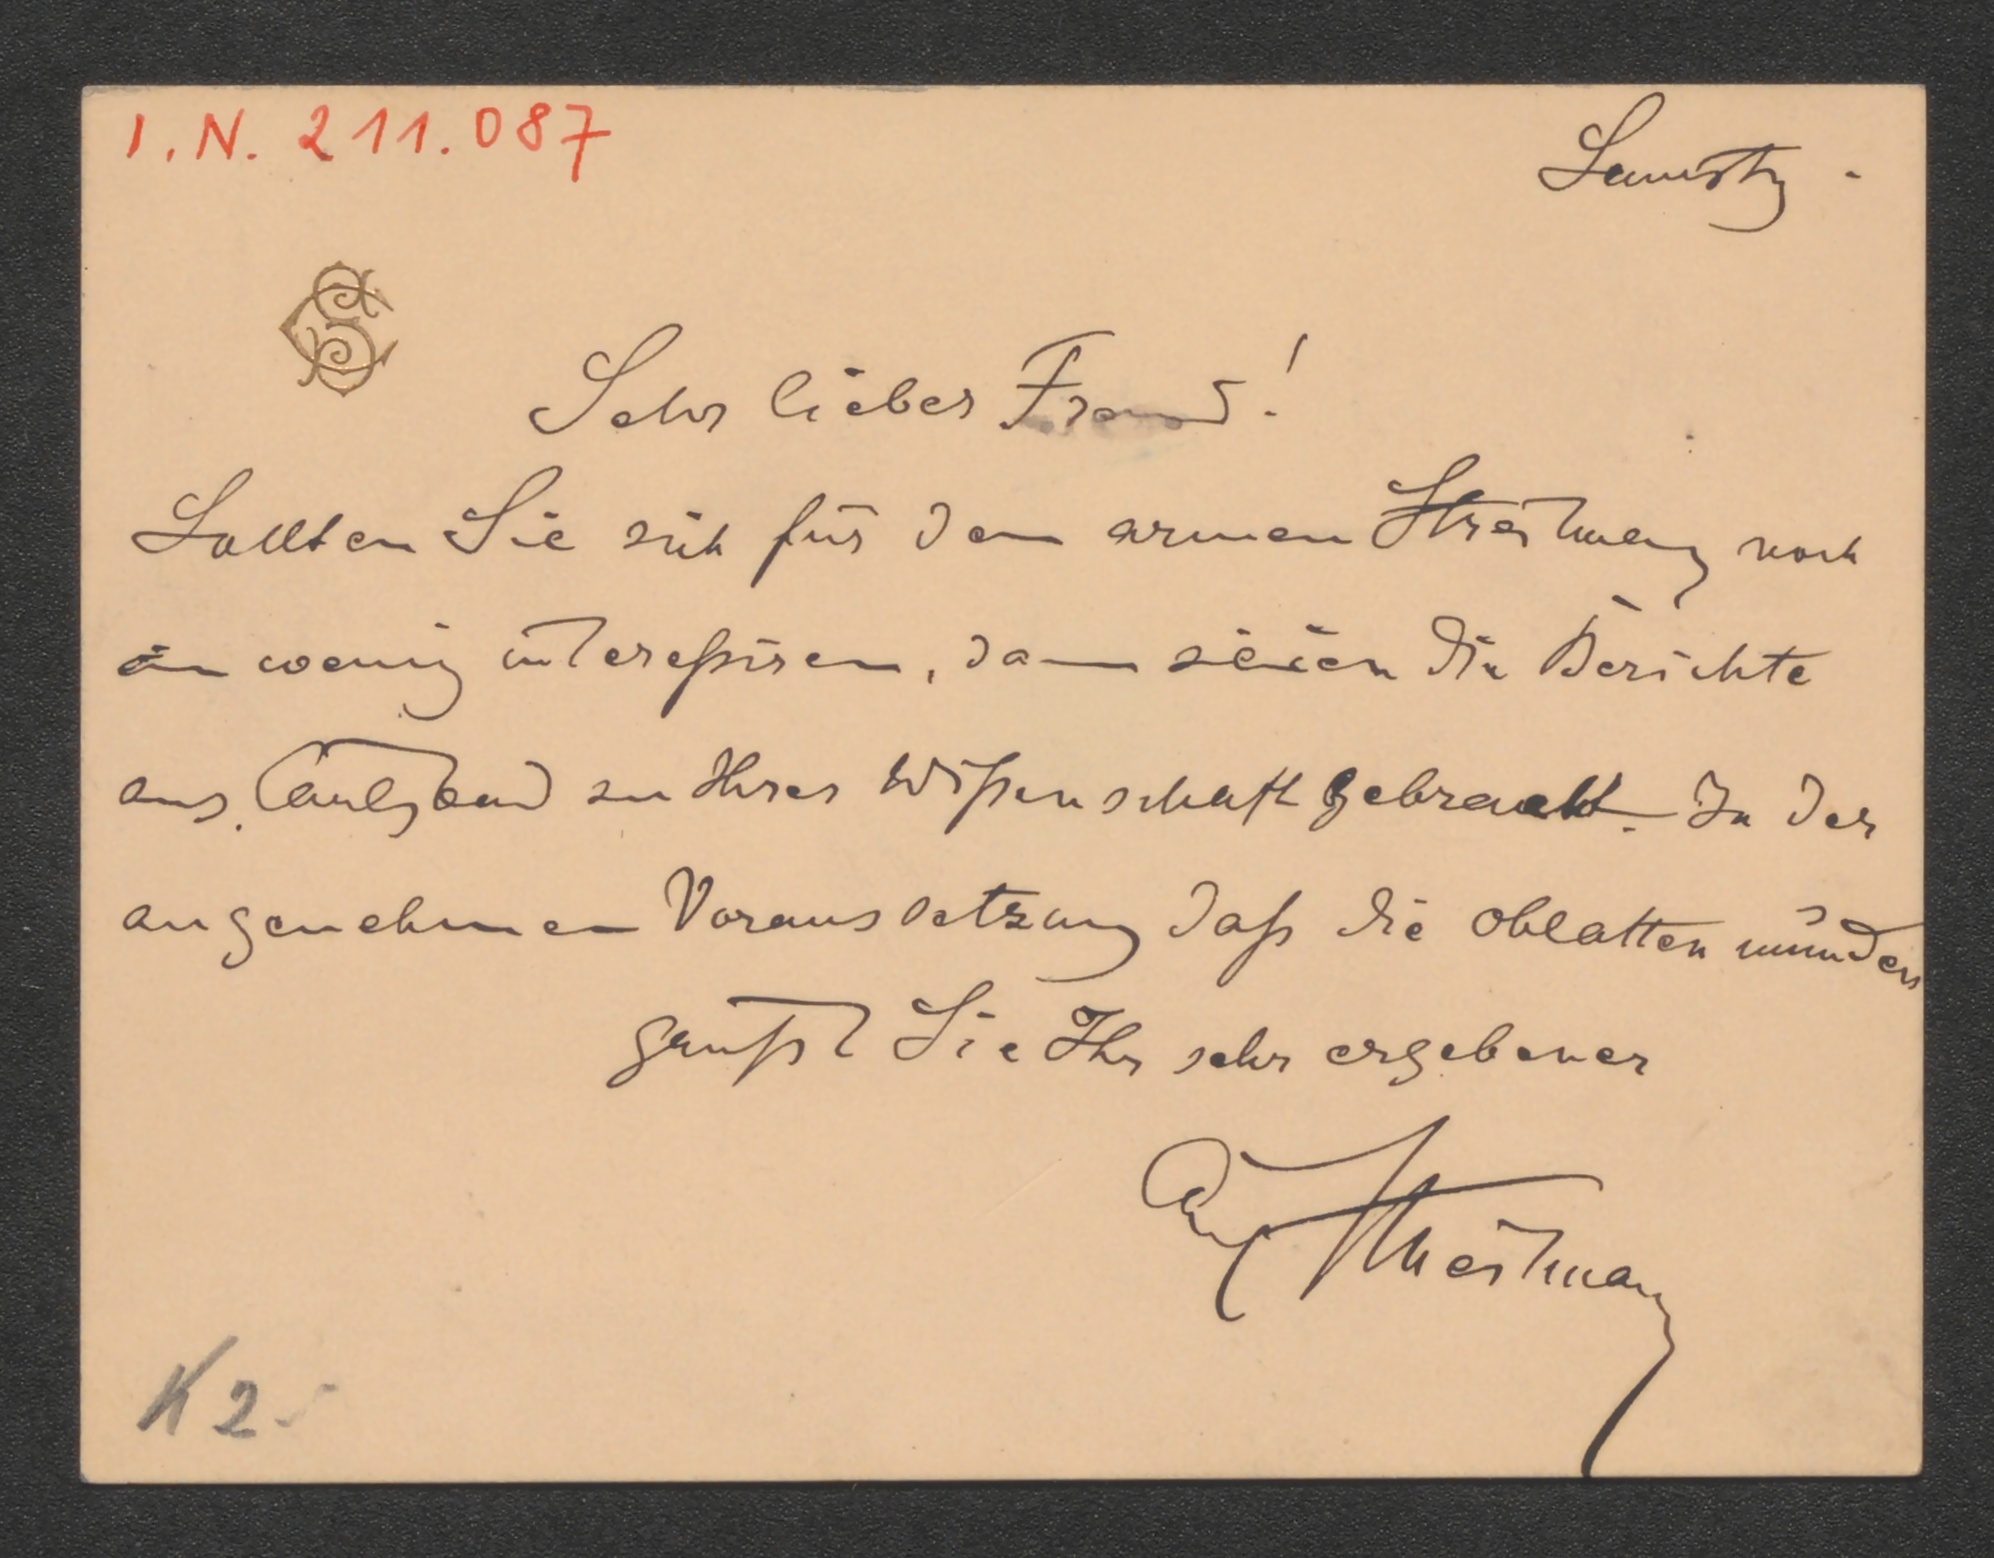 I.N. 211.087
Samstg -
Sehr lieber Freund!
Sollten Sie sich für den armen Streitmann noch
ein wenig interessiren, dann seien die Berichte
aus Carlsbad zu Ihrer Wissenschaft gebracht. In der
angenehmen Voraussetzung daß die Oblatten munden
grüßt Sie Ihr sehr ergebener
Streitmann
K 2.-